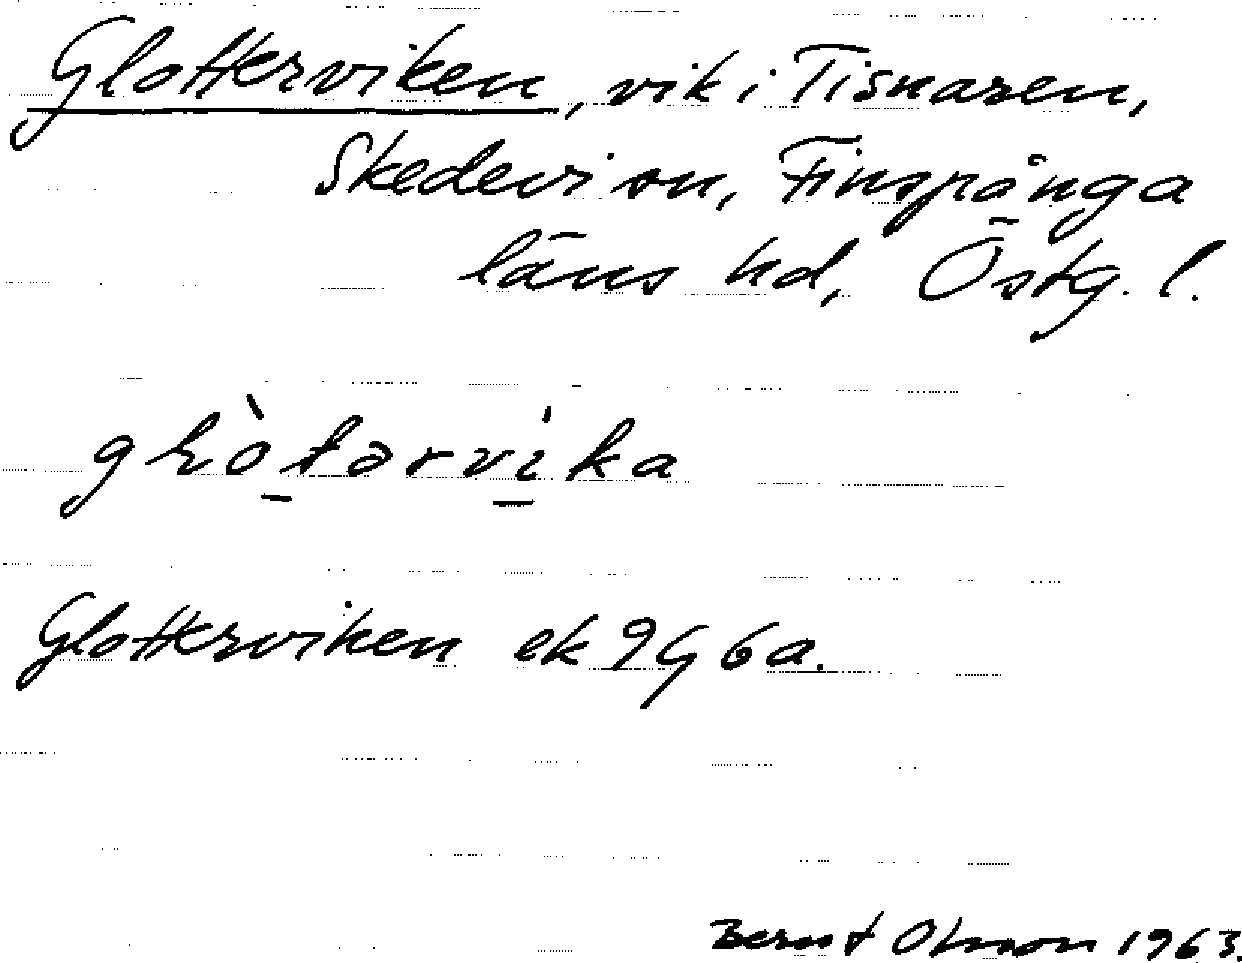 Glotterviken, vik i Tisnaren,
Skedevi sn, Finspånga
läns hd, Östg. l.
glòtərvika
Glotterviken ek 9G 6a.
Bernt Olsson 1963.